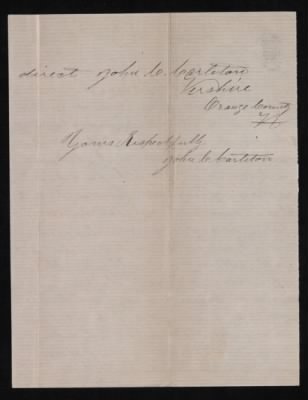 direct John C. Carleton
Vershire
Orange County
Vt
Yours Respectfully
John C Carleton